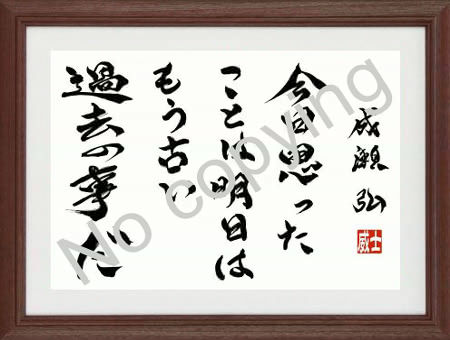 成願 弘
士威
今日思った
ことは明日は
もう古い
過去の事だ
No copying